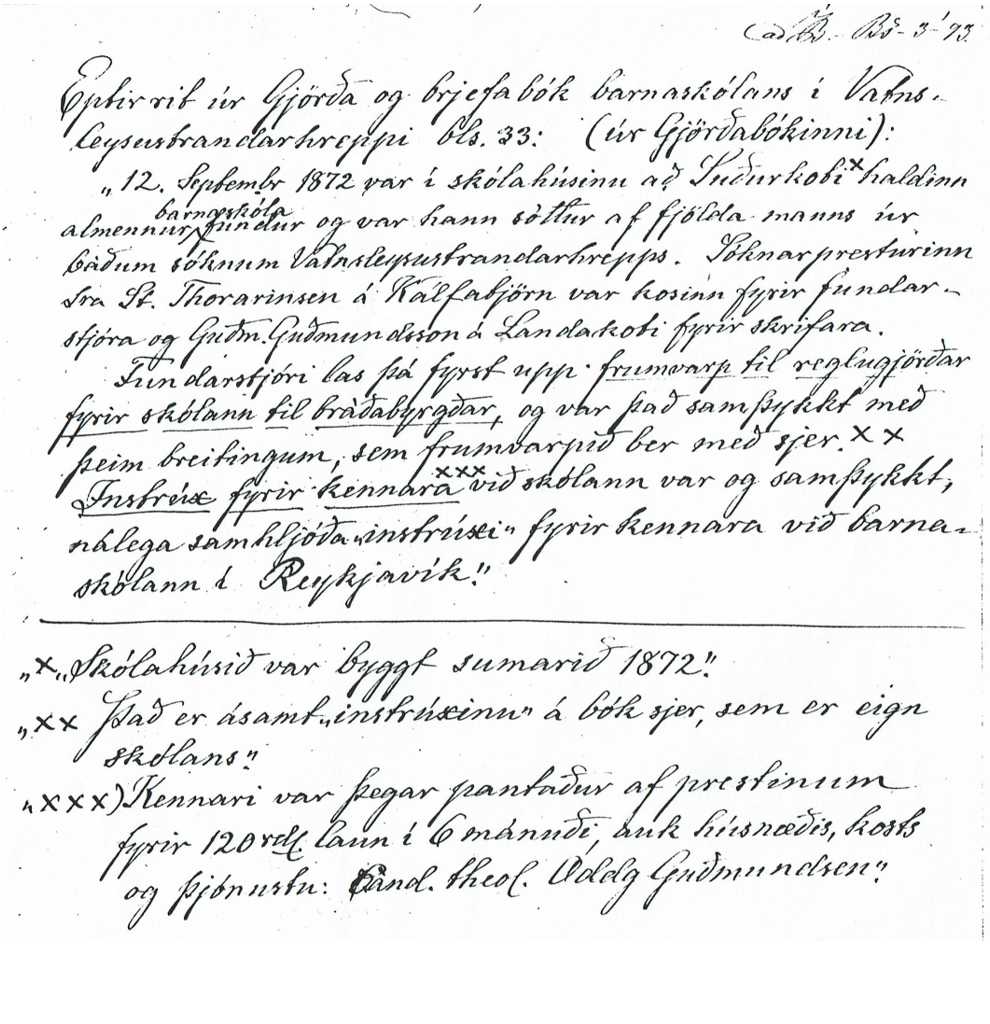 Bs - 3' 93.
Eptirrit úr Gjörða og brjefabók barnaskólans í Vatns-
leysustrandarhreppi bls. 33: (úr Gjörðabókinni):
„12. Septembr 1872 var í skólahúsinu að Suðurkoti x haldinn
barnaskóla
almennur fundur og var hann sóttur af fjölda manns úr
báðum sóknum Vatnsleysustrandarhrepps. Sóknarpresturinn
Sra St. Thorarinsen á Kálfatjörn var kosinn fyrir fundar-
stjóra og Guðm. Guðmundsson á Landakoti fyrir skrifara.
Fundarstjóri las þá fyrst upp frumvarp til reglugjörðar
fyrir skólann til bráðabyrgðar, og var það samþykkt með
þeim breitingum, sem frumvarpið ber með sjer. x x
Instrúx fyrir kennara xxx við skólann var og samþykkt,
nálega samhljóða „instrúxi" fyrir kennara við barna-
skólann í Reykjavík."
„x„ Skólahúsið var byggt sumarið 1872."
„xx Það er ásamt „instrúxinu" á bók sjer, sem er eign
skólans"
„xxx) Kennari var þegar pantaður af prestinum
fyrir 120 rdl. laun í 6 mánuði, auk húsnæðis, kosts
og þjónustu: Cand. theol. Oddg Guðmundsen".